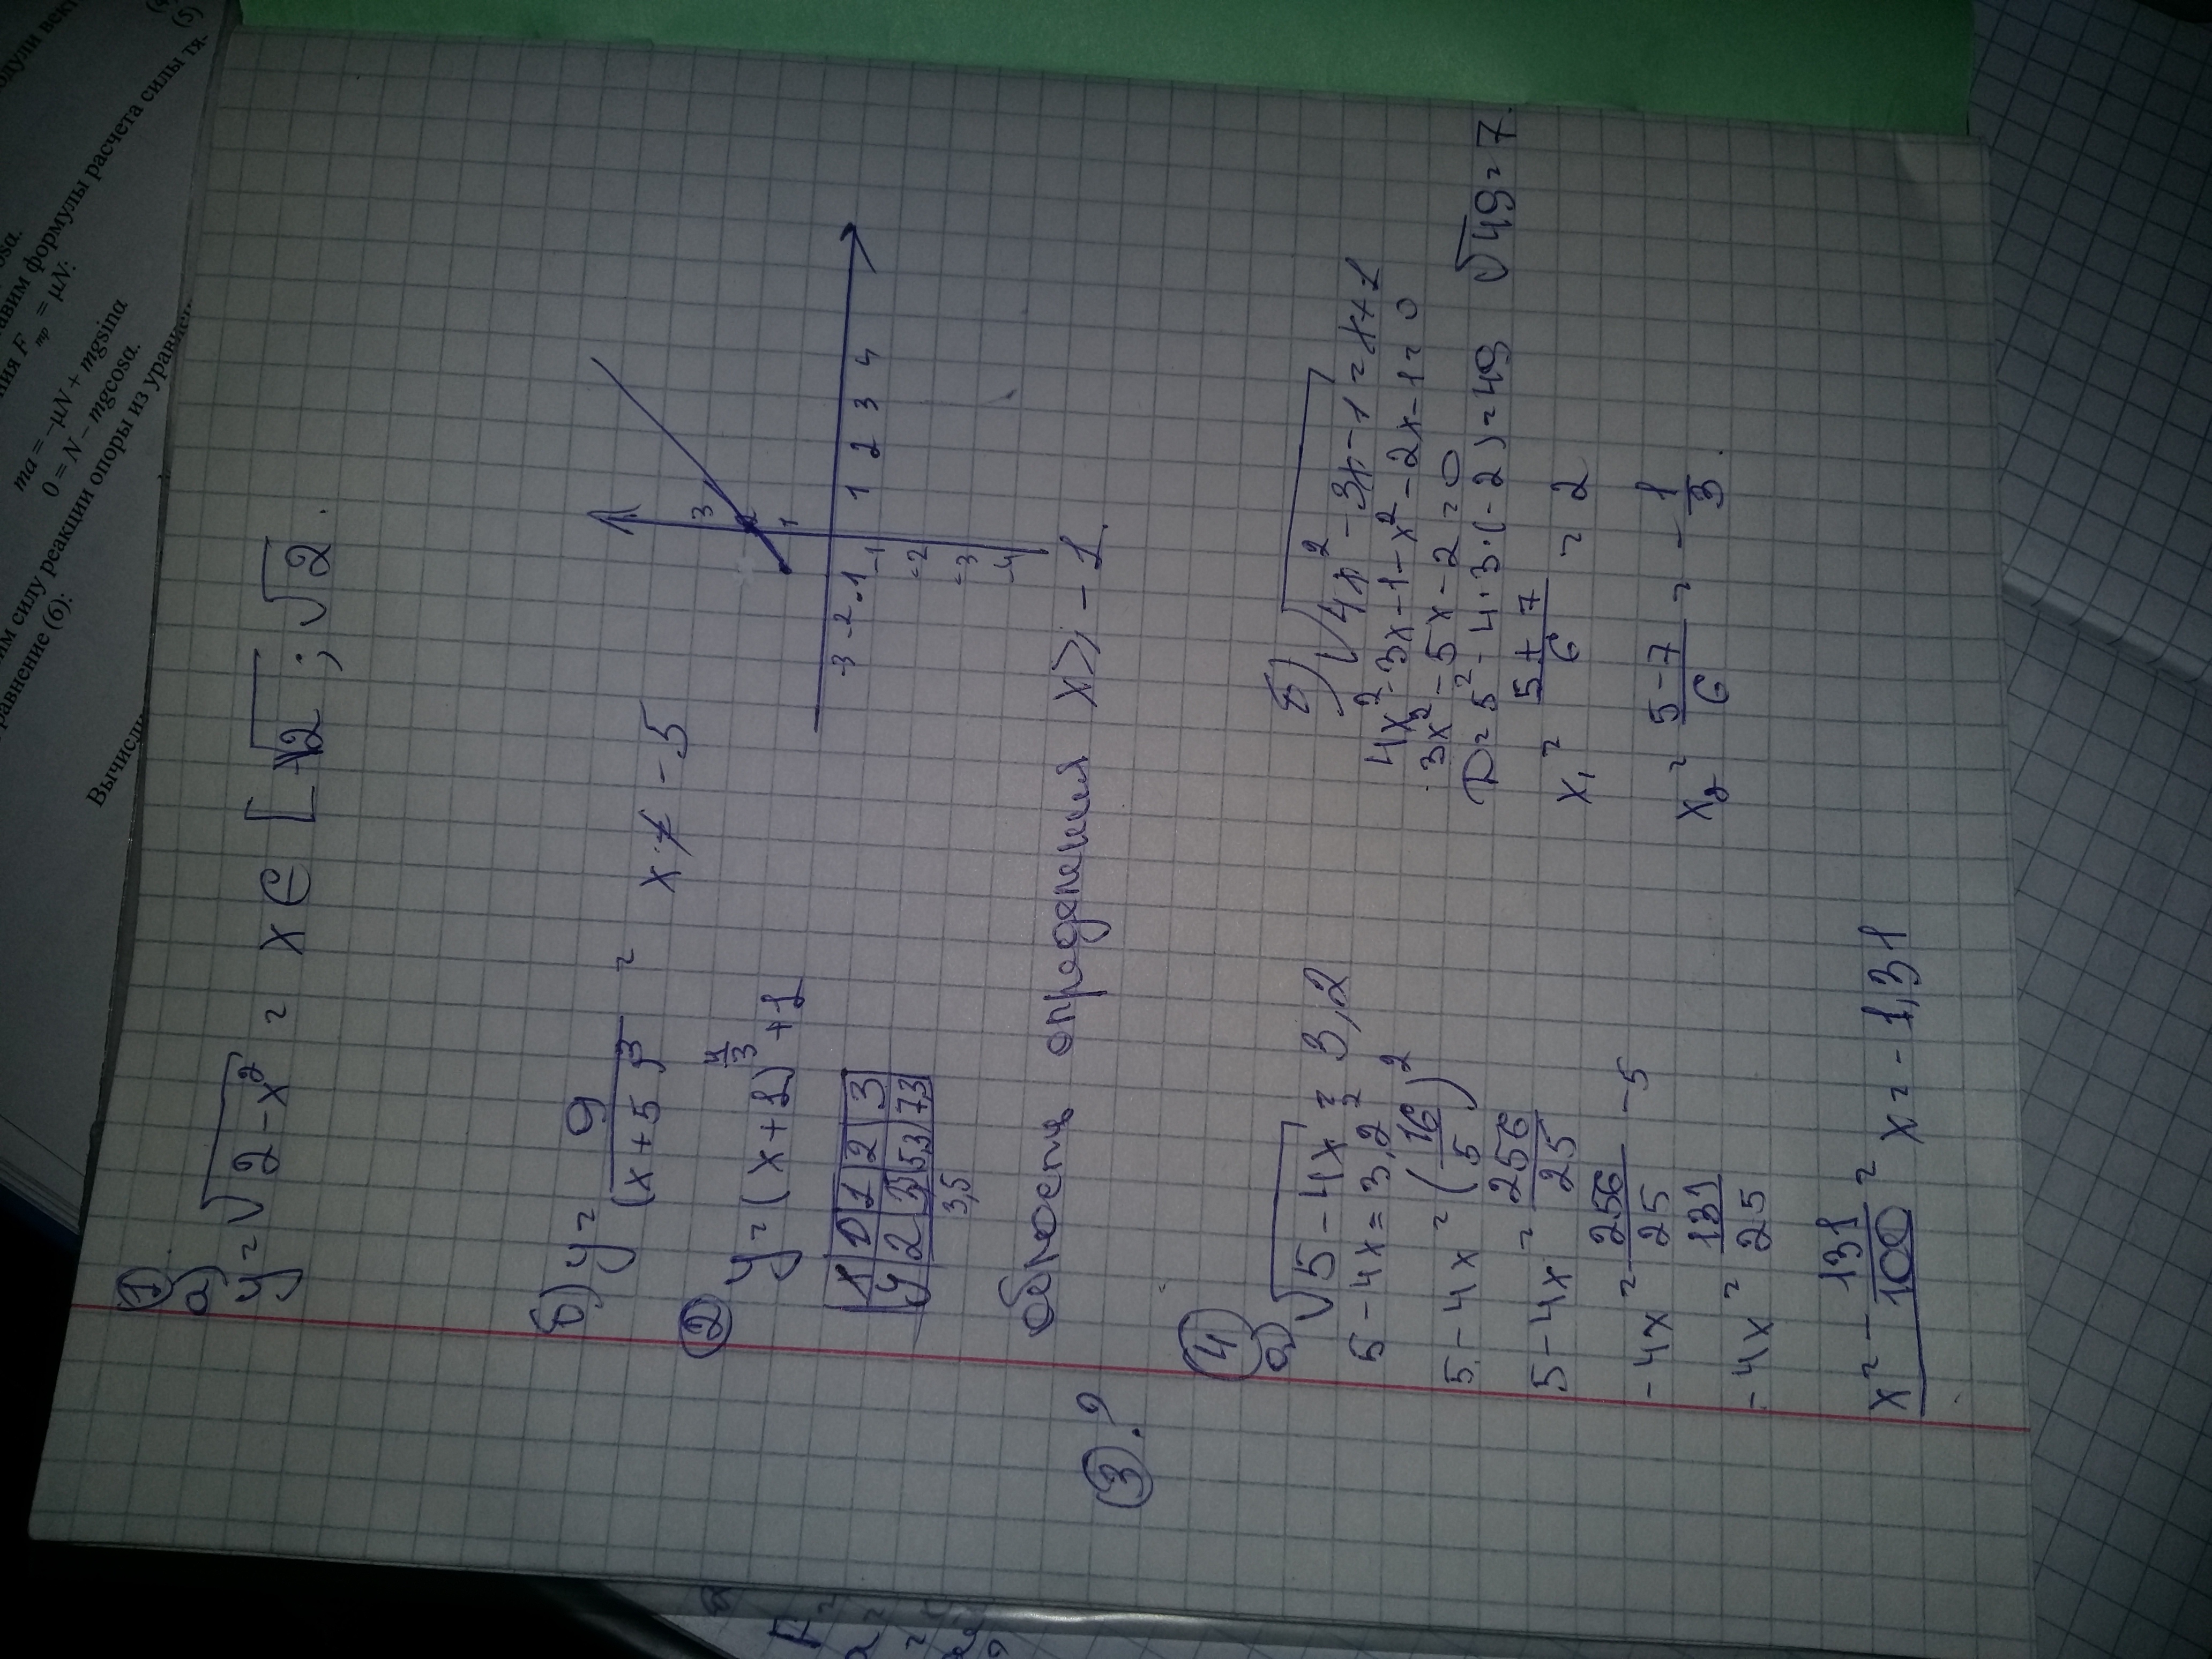 ①
а)
y = √2 - x² = x ∈ [-√2 ; √2.
б) y = 9/(x+5)³ = x ≠ -5
② y = (x+1)^(4/3) + 1
x 0 1 2 3
y 2 3,5 5,3 7,3
3,5
3
2
1
-3 -2 -1 1 2 3 4
-1
-2
-3
-4
область определения x ⩾ -1.
③ ?
④
а) √5 - 4x = 3,2
5 - 4x = 3,2²
5 - 4x = (16/5)²
5 - 4x = 256/25
-4x = 256/25 - 5
-4x = 131/25
x = - 131/100 = x = -1,31
б) √4x² - 3x - 1 = x + 1
4x² - 3x - 1 - x² - 2x - 1 = 0
3x² - 5x - 2 = 0
D = 5² - 4·3·(-2) = 49 √49 = 7.
x₁ = 5+7/6 = 2
x₂ = 5-7/6 = - 1/3.
(5)
авим формулы расчета силы тя-
ma = -μN + mgsinα
0 = N - mgcosα.
им силу реакции опоры из уравнен
равнение (6):